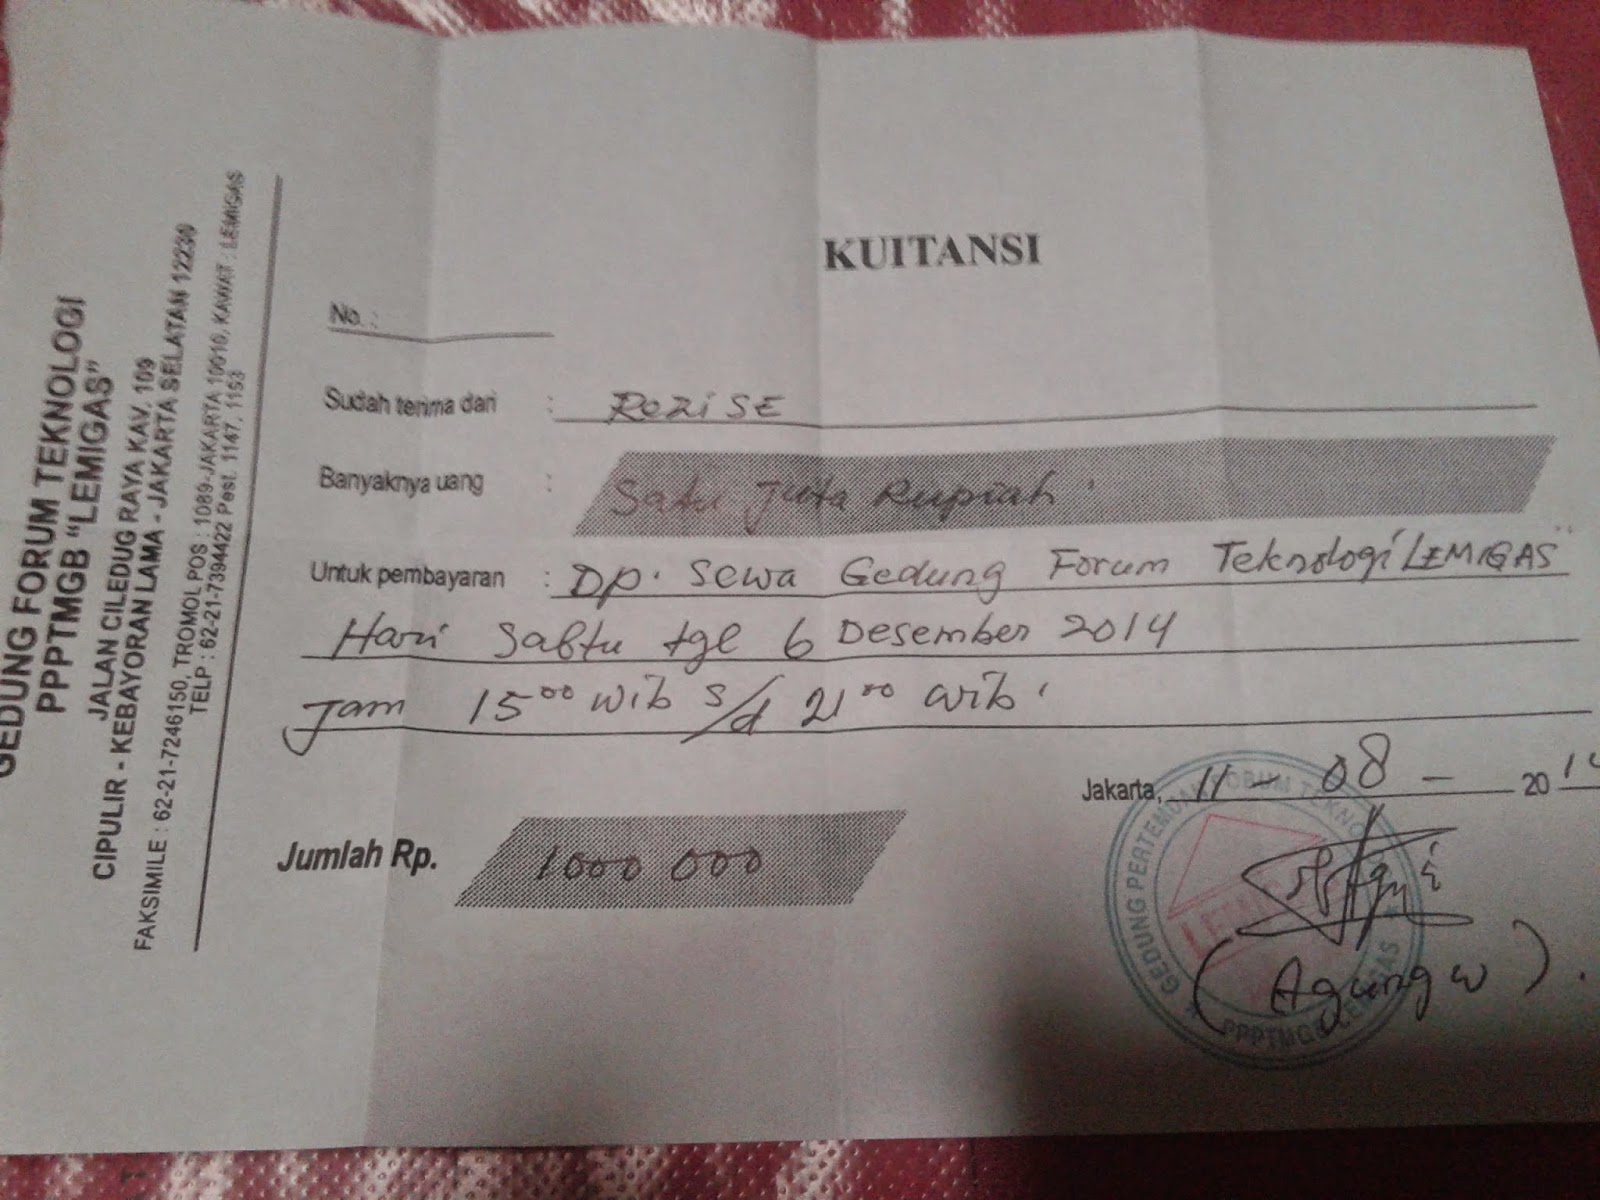 GEDUNG FORUM TEKNOLOGI
PPPTMGB "LEMIGAS"
JALAN CILEDUG RAYA KAV. 109
CIPULIR - KEBAYORAN LAMA - JAKARTA SELATAN 12230
FAKSIMILE : 62-21-7246150, TROMOL POS : 1089-JAKARTA 10010, KAWAT : LEMIGAS
TELP : 62-21-7394422 Pest. 1147, 1153
KUITANSI
No. :
Sudah terima dari : Rezi SE
Banyaknya uang : Satu Juta Rupiah
Untuk pembayaran : DP. Sewa Gedung Forum Teknologi LEMIGAS"
Hari Sabtu tgl 6 Desember 2014
Jam 15.00 wib s/d 21.00 wib
Jakarta, 11 - 08 - 2014
Jumlah Rp. 1000 000
GEDUNG PERTEMUAN FORUM TEKNO
PPPTMGB LEMIGAS
(Agung W).